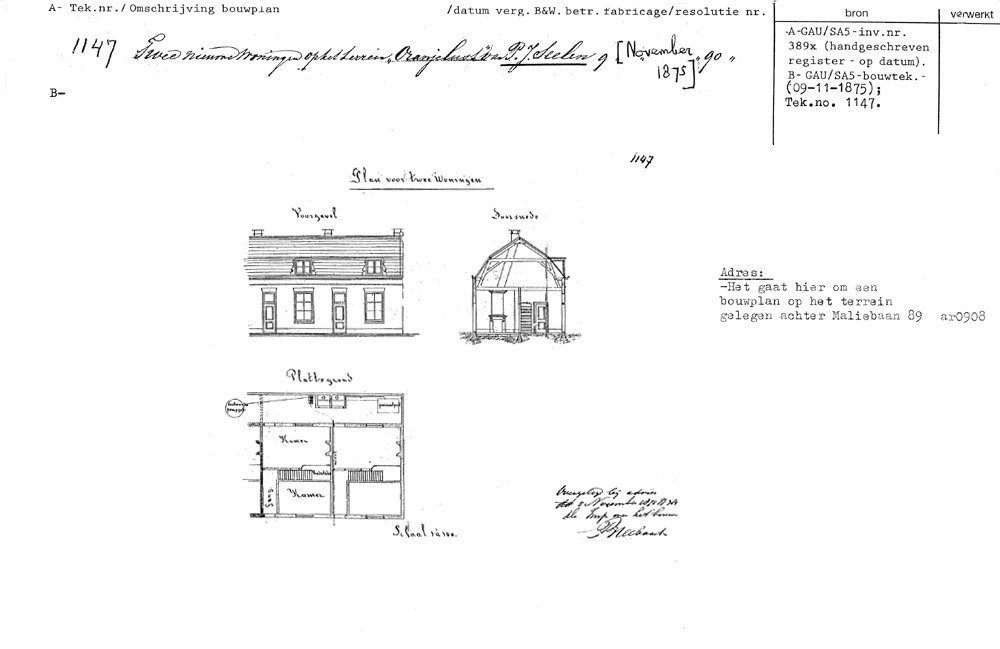 A- Tek.nr./Omschrijving bouwplan
/datum verg. B&W. betr. fabricage/resolutie nr.
bron
verwerkt
1147 Twee nieuwe Woningen op het terrein „Oranjelust" van P. J. Seelen 9 [November 1875] „90 „
-A-GAU/SA5-inv.nr.
389x (handgeschreven
register - op datum).
B- GAU/SA5-bouwtek.-
(09-11-1875);
Tek.no. 1147.
B-
1147
Plan voor twee Woningen
Voorgevel
Doorsnede
Adres:
-Het gaat hier om een
bouwplan op het terrein
gelegen achter Maliebaan 89 ar0908
Plattegrond
Kamer
Kamer
Gang
Overgelegd bij advies
November
het bouwen
Schaal 1 à 100.